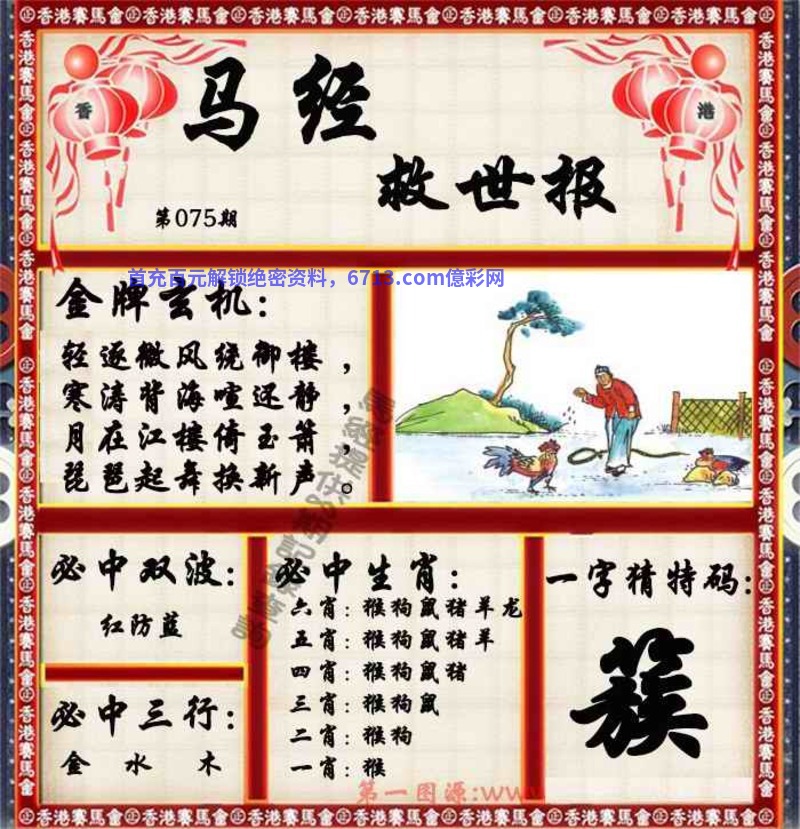 ㊣香港賽馬會㊣香港賽馬會㊣香港賽馬會㊣香港賽馬會㊣香港賽馬會㊣香港賽馬會㊣
香
港
马经
救世报
第075期
首充百元解锁绝密资料，6713.com億彩网
金牌玄机：
轻逐微风绕御楼，
寒涛背海喧还静，
月在江楼倚玉箫，
琵琶起舞换新声。
必中双波：
红防蓝
必中三行：
金 水 木
必中生肖：
六肖：猴狗鼠猪羊龙
五肖：猴狗鼠猪羊
四肖：猴狗鼠猪
三肖：猴狗鼠
二肖：猴狗
一肖：猴
一字猜特码：
簇
第一图源:www